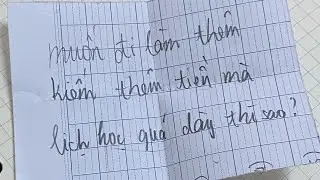 muốn đi làm thêm
kiếm thêm tiền mà
lịch học quá dày thì sao?